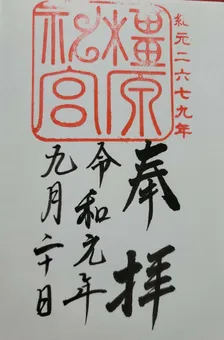 紀元二六七九年
橿原神宮
奉拝
令和元年
九月二十日